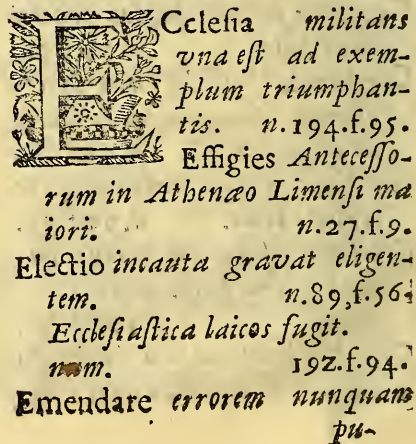 Ecclesia militans
vna eſt ad exem-
plum triumphan-
tis. n.194.f.95.
Effigies Anteceſſo-
rum in Athenæo Limenſi ma
iori. n.27.f.9.
Electio incauta gravat eligen-
tem. n.89,f.56.
Eccleſiaſtica laicos fugit.
num. 192.f.94.
Emendare errorem nunquam
pu-